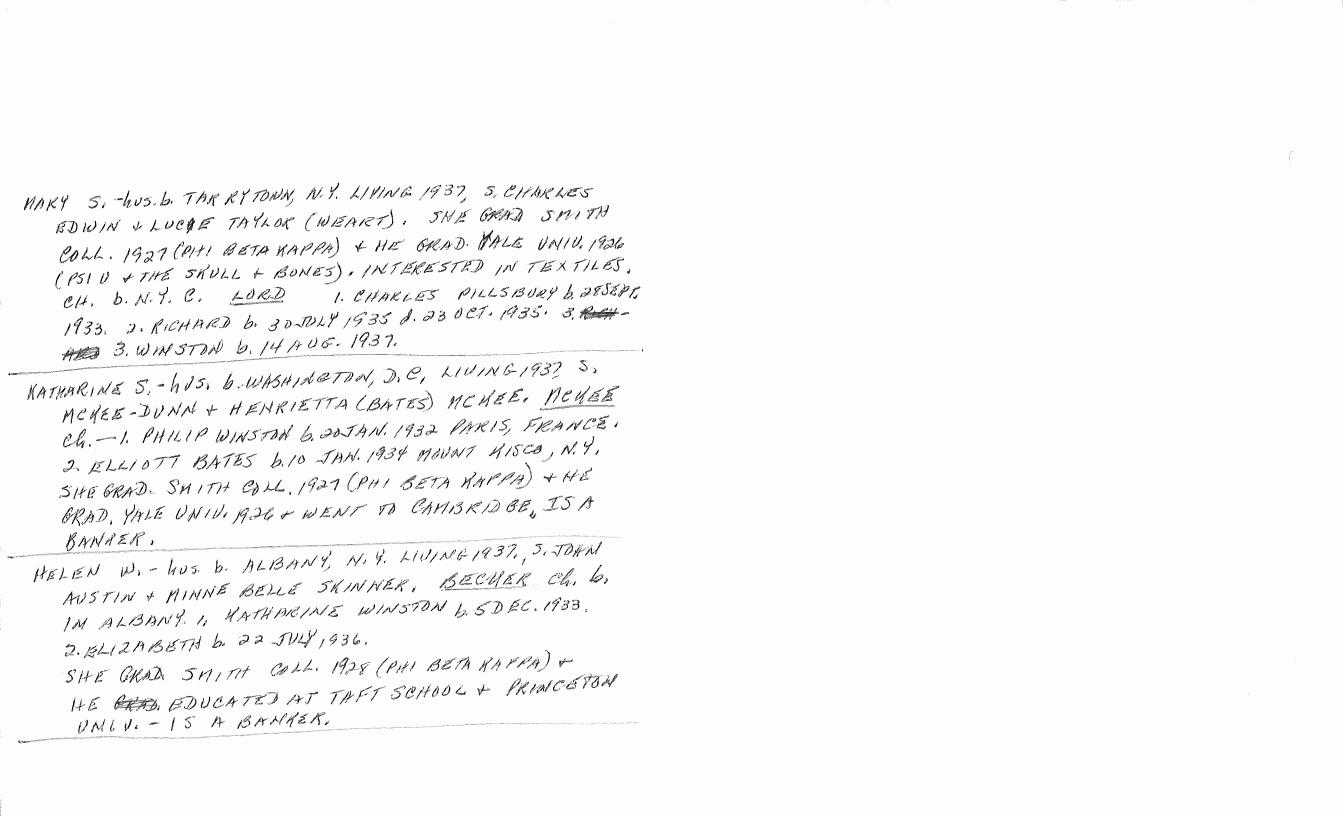 MARY S. -hus. b. TARRYTOWN, N.Y. LIVING 1937, S. CHARLES
EDWIN + LUCIE TAYLOR (WEART). SHE GRAD SMITH
COLL. 1927 (PHI BETA KAPPA) + HE GRAD. YALE UNIV. 1926
(PSI U + THE SKULL + BONES). INTERESTED IN TEXTILES.
CH. b. N.Y.C. LORD 1. CHARLES PILLSBURY b. 28 SEPT.
1933. 2. RICHARD b. 30 JULY 1935 d. 23 OCT. 1935. 3.
3. WINSTON b. 14 AUG. 1937.
KATHARINE S. - hus. b. WASHINGTON, D.C. LIVING 1937, S.
MCKEE-DUNN + HENRIETTA (BATES) MCKEE. MCKEE
Ch. — 1. PHILIP WINSTON b. 20 JAN. 1932 PARIS, FRANCE.
2. ELLIOTT BATES b. 10 JAN. 1934 MOUNT KISCO, N.Y.
SHE GRAD. SMITH COLL. 1927 (PHI BETA KAPPA) + HE
GRAD. YALE UNIV. 1926 + WENT TO CAMBRIDGE, IS A
BANKER.
HELEN W. - hus. b. ALBANY, N.Y. LIVING 1937., S. JOHN
AUSTIN + MINNE BELLE SKINNER. BECKER Ch. b.
IM ALBANY. 1. KATHARINE WINSTON b. 5 DEC. 1933.
2. ELIZABETH b. 22 JULY, 1936.
SHE GRAD. SMITH COLL. 1928 (PHI BETA KAPPA) +
HE EDUCATED AT TAFT SCHOOL + PRINCETON
UNIV. - IS A BANKER.